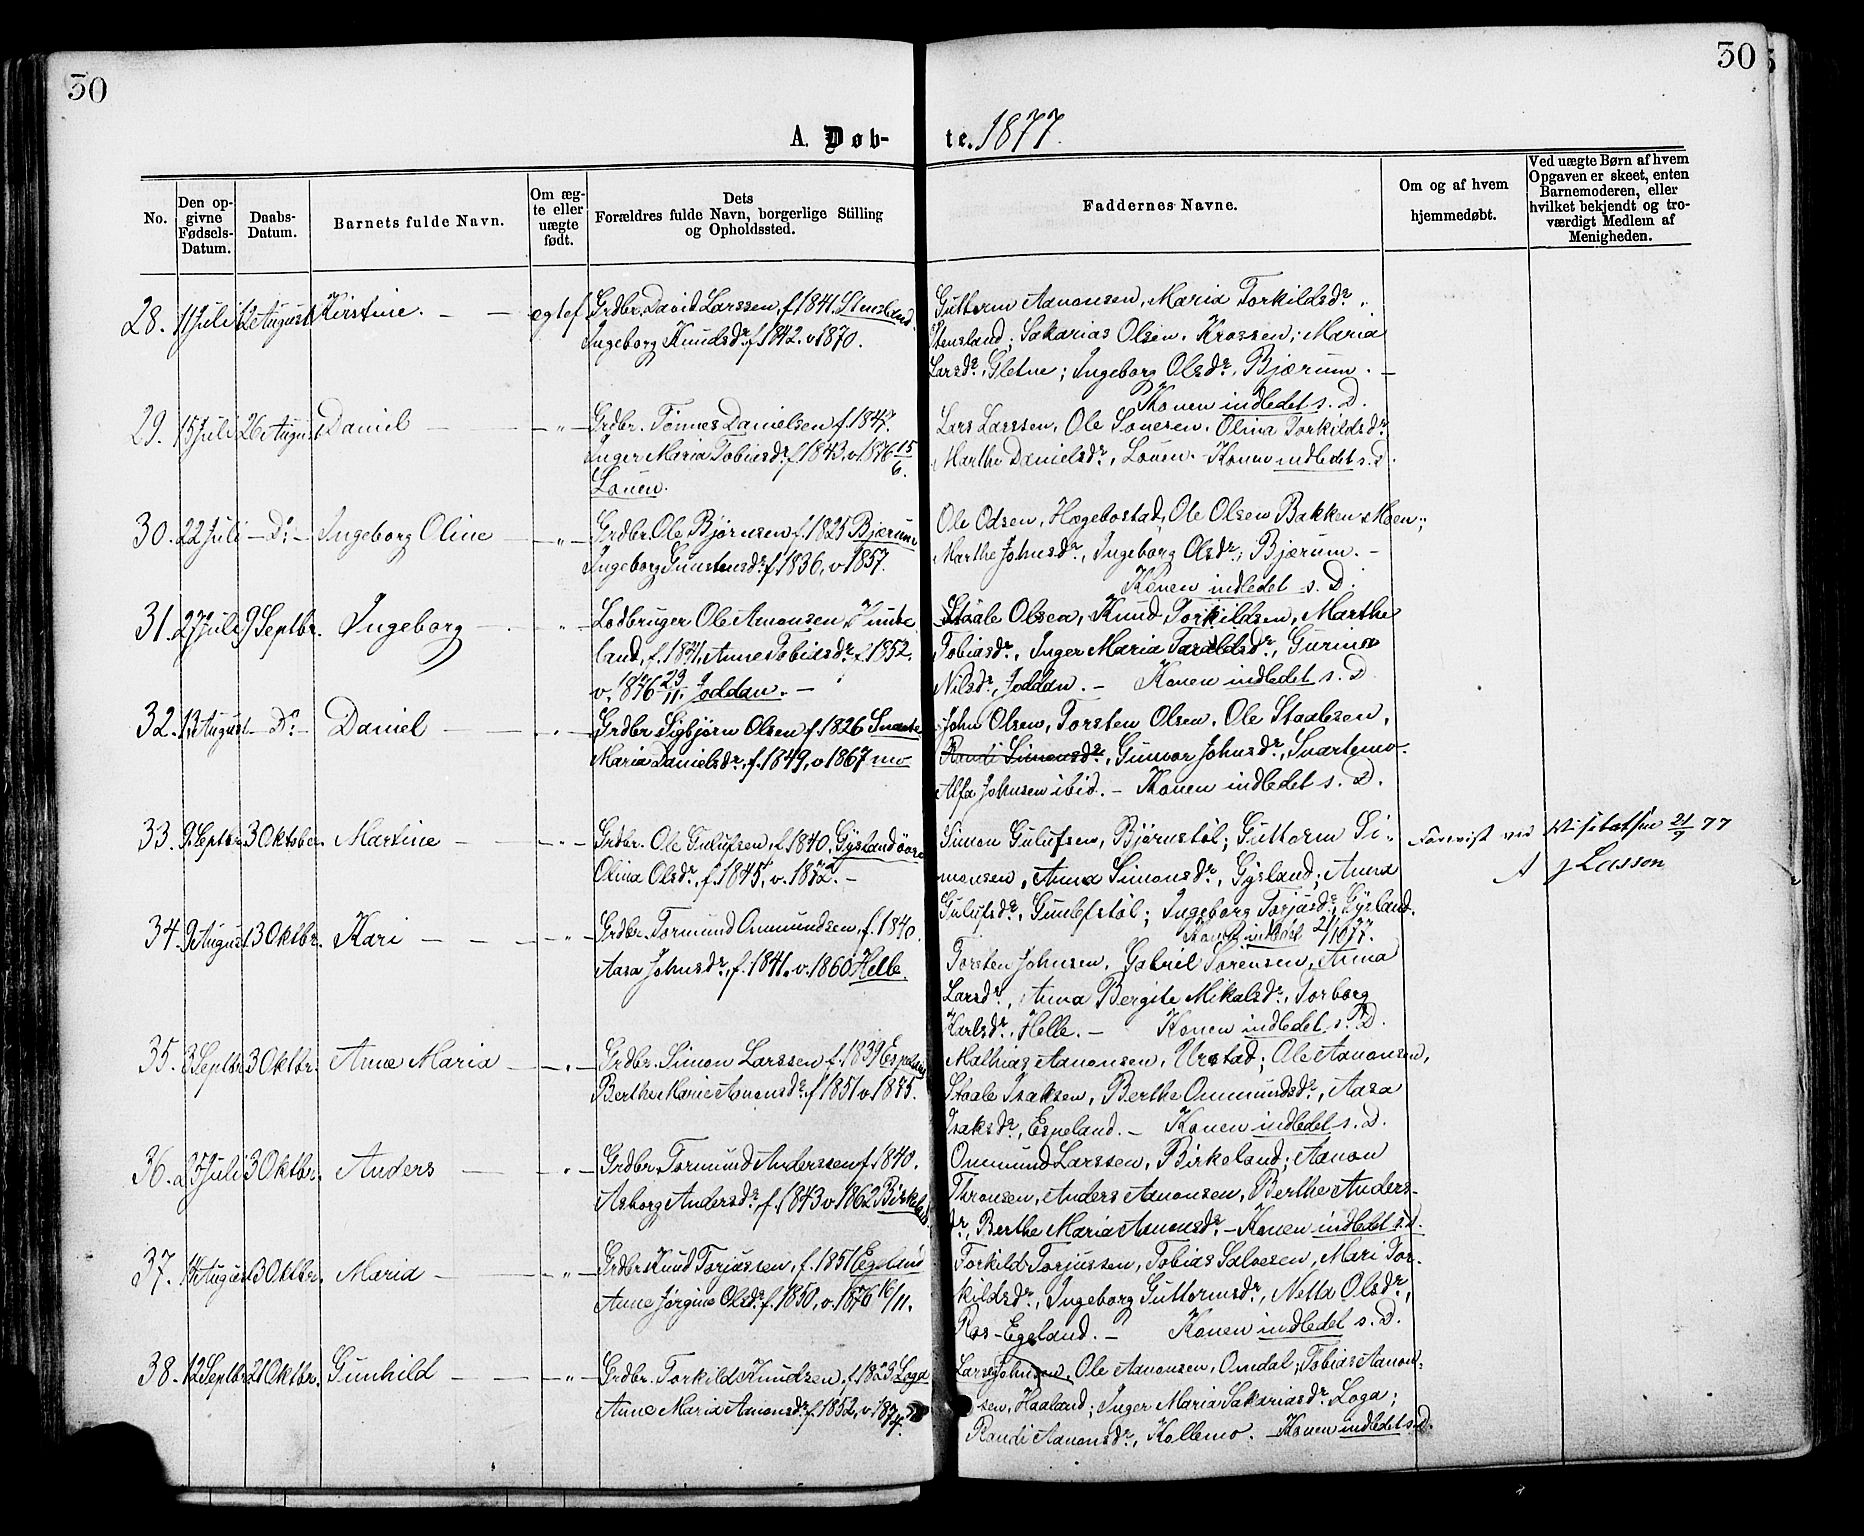 30
30
A. Døb-
te. 1877.
No.
Den op-
givne
Fødsels-
Datum.
Daabs-
Datum.
Barnets fulde Navn.
Om æg-
te eller
uægte
født.
Dets
Forældres fulde Navn, borgerlige Stilling
og Opholdssted.
Faddernes Navne.
Om og af hvem
hjemmedøbt.
Ved uægte Børn af hvem
Opgaven er skeet, enten
Barnemoderen, eller
hvilket bekjendt og tro-
værdigt Medlem af
Menigheden.
28. 11 Juli 12 August Kirstine. — — egtef. Grdbr. David Larssen, f. 1841. Stensland.
Ingeborg Knudsdr. f. 1842. v. 1870.
Guttorm Aanonsen, Maria Torkildsdr.,
Stensland; Sakarias Olsen, Krossen; Maria
Larsdr., Gletne; Ingeborg Olsdr., Bjærum. —
Konen indledet s. D.
29. 15 Juli 26 August Daniel — — — „ — Grdbr. Tønnes Danielsen f. 1847.
Inger Maria Tobiasdr. f. 1843. v. 1876 15/6.
Louen.
Lars Larssen, Ole Sonesen, Olina Torkildsdr.
Marthe Danielsdr., Louen. — Konen indledet s. D.
30. 22 Juli — Do — Ingeborg Oline — — „ — Grdbr. Ole Bjørnsen f. 1825 Bjærum
Ingeborg Gunstensdr. f. 1836, v. 1857.
Ole Odsen, Hægebostad, Ole Olsen Bakken, Moen;
Marthe Johnsdr., Ingeborg Olsdr., Bjærum. —
Konen indledet s. D.
31. 27 Juli 9 Septbr. Ingeborg — — — „ — Lodbruger Ole Amonsen, Kunde
land, f. 1841, Anne Tobiasdr. f. 1852.
v. 1876 23/11. Joddan. —
Staale Olsen, Knud Torkildsen, Marthe
Tobiasdr., Inger Maria Taraldsdr., Gurine
Nilsdr., Joddan. — Konen indledet s. D.
32. 13 August — Do — Daniel — — „ — Grdbr. Sigbjørn Olsen f. 1826 Svarte
Maria Danielsdr., f. 1849, v. 1867 mo
John Olsen, Torsten Olsen, Ole Staalesen,
Randi Simonsdr., Gunvor Johnsdr., Svartemo.
Alfa Johnsen ibid. — Konen indledet s. D.
33. 9 Septbr. 3 Oktober Martine — — „ — Grdbr. Ole Gulufsen, f. 1840, Gyslandøore
Olina Olsdr., f. 1845, v. 1872. —
Simon Gulufsen, Bjørnstøl; Guttorm Si-
monsen, Anna Simonsdr., Gysland; Anna
Gulufsdr., Gunlefstøl; Ingeborg Torjusdr., Gysland.
Konen indledt 21/10 77.
Forevist ved Visitatsen 21/9 77
J Lasson
34. 9 August 3 Oktbr. Kari — — — „ — Grdbr. Tormund Ommundsen, f. 1840.
Aasa Johnsdr., f. 1841. v. 1860 Helle.
Torsten Johnsen, Gabriel Sørensen, Anna
Larsdr., Anna Bergite Mikalsdr., Torborg
Karlsdr., Helle. — Konen indledet s. D.
35. 3 Septbr. 3 Oktbr. Anne Maria — — „ — Grdbr. Simon Larssen f. 1839 Espeland
Berthe Marie Aanonsdr. f. 1851 v. 1875.
Mathias Aanonsen, Urstad; Ole Aanonsen,
Staale Isaksen, Berthe Ommundsdr., Aasa
Isaksdr., Espeland. — Konen indledet s. D.
36. 25 Juli 3 Oktbr. Anders — — „ — Grdbr. Tormund Anderssen f. 1840.
Asborg Andersdr. f. 1843 v. 1862 Birkeland.
Ommund Larssen, Birkeland; Aanon
Thronsen, Anders Aanonsen, Berthe Anders-
dr., Berthe Maria Aanonsdr. — Konen indledet s. D.
37. 14 August 3 Oktbr. Maria — — „ — Grdbr. Knud Torjussen, f. 1851 Egeland
Anne Jørgine Olsdr. f. 1850, v. 1876 16/11.
Torkild Torjussen, Tobias Salvesen, Mari Tor-
kildsdr., Ingeborg Guttormsdr., Netta Olsdr.,
Ros-Egeland. — Konen indledet s. D.
38. 12 Septbr. 21 Oktbr. Gunhild — — „ — Grdbr. Torkild Knudsen, f. 1823 Loga
Anne Maria Aanonsdr. f. 1852, v. 1874.
Lars Johnsen, Ole Aanonsen, Omdal; Tobias Aanon-
sen, Haaland; Inger Maria Sakariasdr. Loga;
Randi Aanonsdr., Kollemo. — Konen indledet s. D.